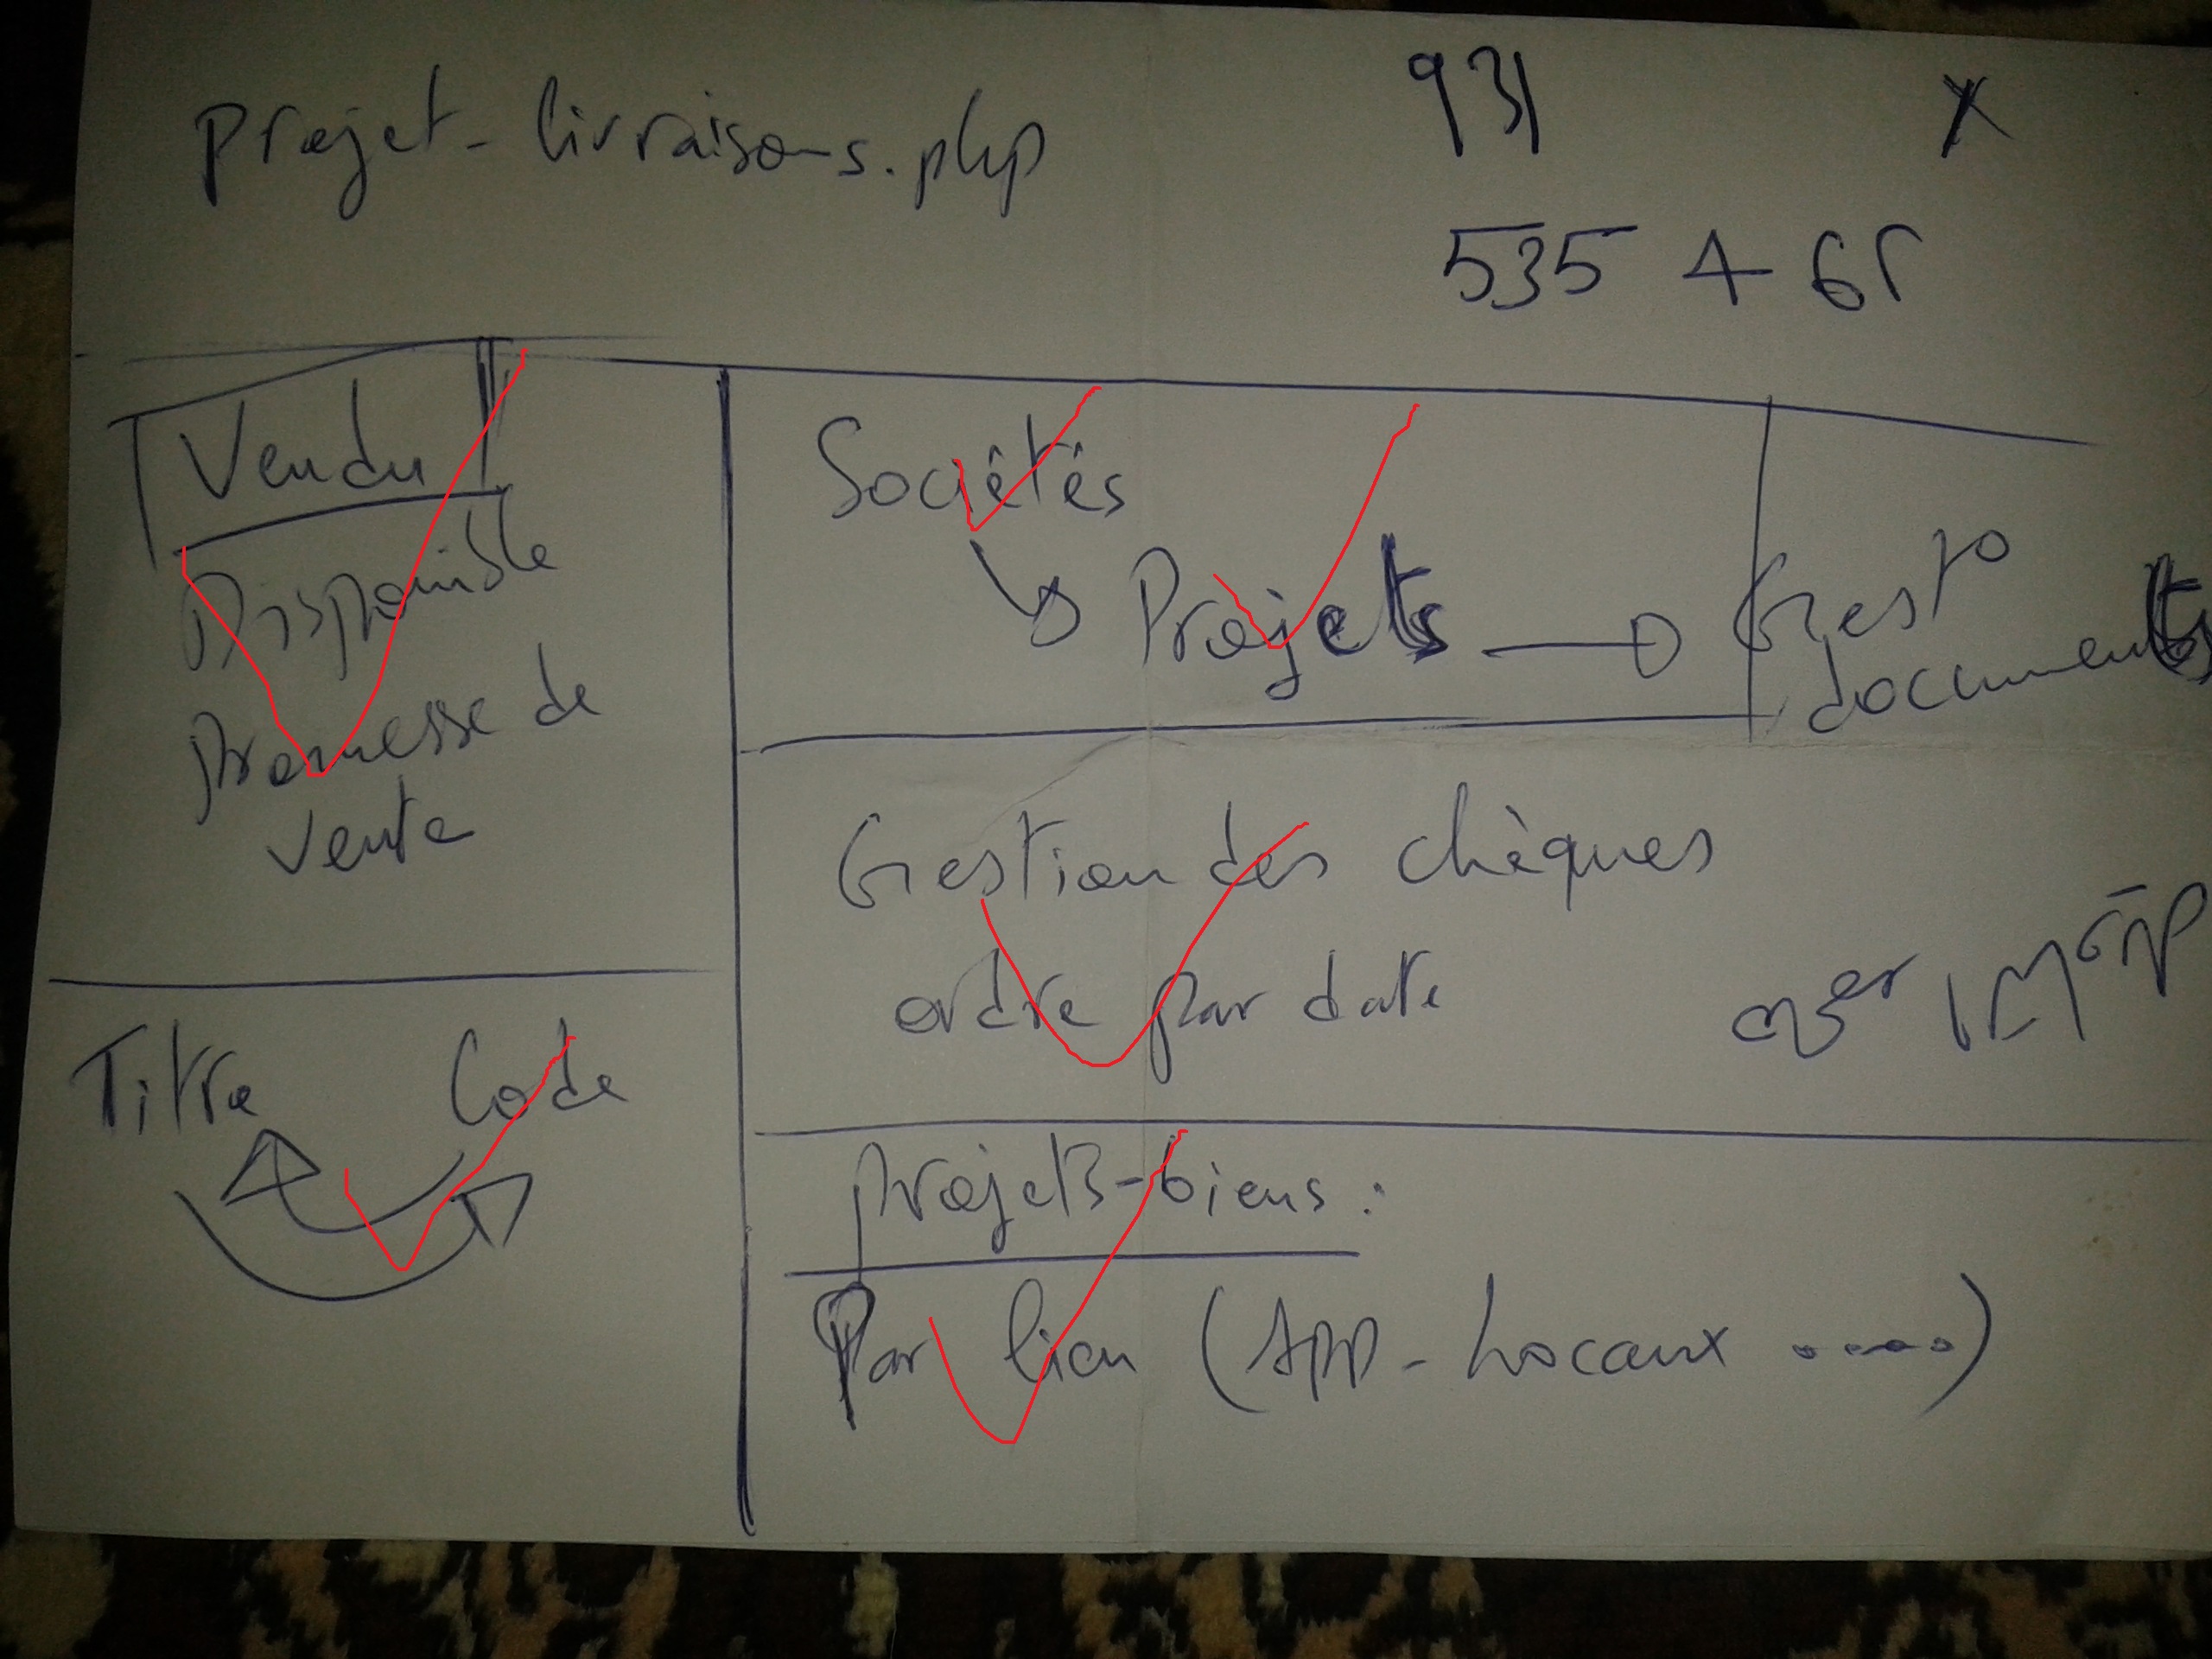 Projet-livraisons.php
931 X
535 + 65
Vendu
Disponible
Promesse de
vente
Titre Code
Sociétés
Projets
Gest°
documents
Gestion des chèques
ordre par date
Projets-biens :
Par bien (App - Locaux ....)